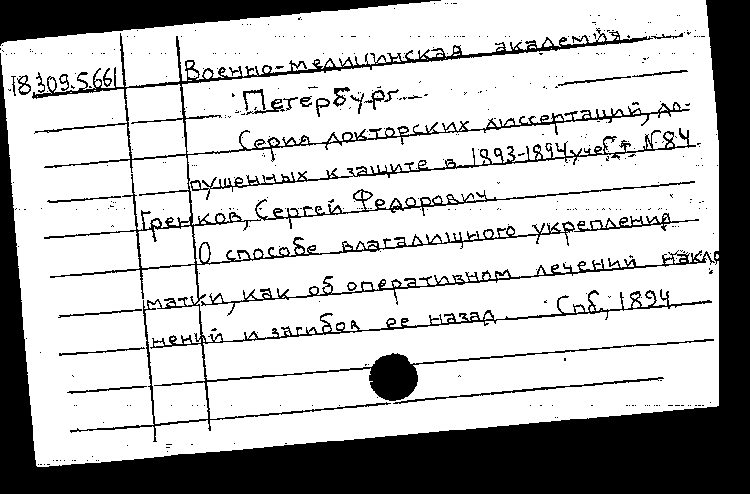 18.309.5.661
Военно-медицинская академия.
Петербург
Серия докторских диссертаций, до-
пущенных к защите в 1893-1894 учеб. г. № 84
Гренков, Сергей Федорович.
О способе влагалищного укрепления
матки, как об оперативном лечений накло
нений и загибов ее назад. Спб., 1894